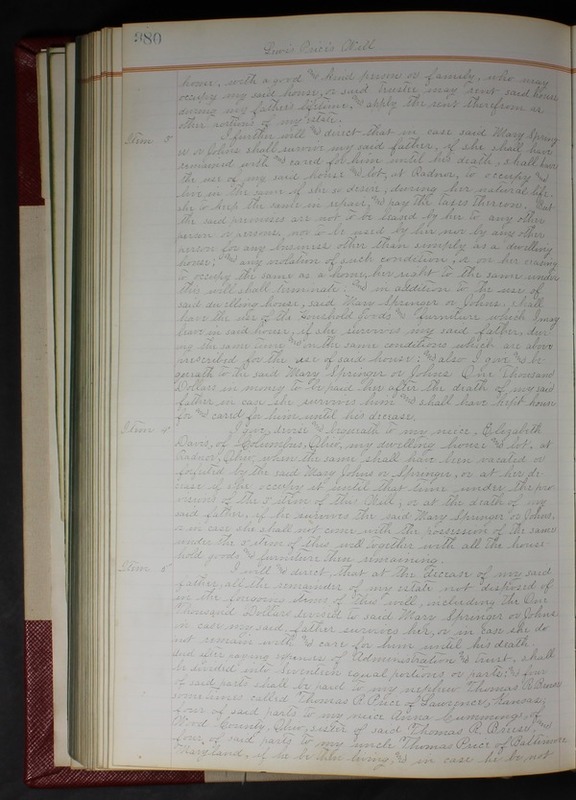 980
Lewis Price's Will
house, with a good and kind person or family, who may
occupy my said house, or said trustee may rent said house
during my father's lifetime, and apply the rent therefrom as
other portions of my estate.
Item 3 I further will and direct that in case said Mary Spring
er or Johns shall survive my said father, if she shall have
remained with and cared for him until his death, shall have
the use of my said house and lot, at Radnor, to occupy and
live in the same if she so desire, during her natural life.
she to keep the same in repair, and pay the taxes thereon. That
the said premises are not to be leased by her to any other
person or persons, nor to be used by her nor by any other
person for any business other than simply as a dwelling
house; and any violation of such condition, or on her ceasing
to occupy the same as a home, her right to the same under
this will shall terminate: and in addition to the use of
said dwelling house, said Mary Springer or Johns, shall
have the use of the household goods and furniture which I may
leave in said house, if she survives my said father, dur-
ing the same time and on the same conditions which are above
prescribed for the use of said house: and also I give and be-
queath to the said Mary Springer or Johns One Thousand
Dollars in money to be paid her after the death of my said
father in case she survives him and shall have kept house
for and cared for him until his decease.
Item 4 I give, devise and bequeath to my niece, Elizabeth
Davis, of Columbus, Ohio, my dwelling house and lot, at
Radnor, Ohio, when the same shall have been vacated or
forfeited by the said Mary Johns or Springer, or at her de-
cease if she occupy it until that time under the pro
visions of the 3 item of this Will; or at the death of my
said father, if he survives the said Mary Springer or Johns,
or in case she shall not come with the possession of the same
under the 3 item of this will together with all the house-
hold goods and furniture then remaining.
Item 5 I will and direct, that at the decease of my said
father, all the remainder of my estate not disposed of
in the foregoing items of this will, including the One
Thousand Dollars devised to said Mary Springer or Johns
in case my said father survives her, or in case she do
not remain with and care for him until his death
and after paying expenses of Administration and trust, shall
be divided into seventeen equal portions or parts: and four
of said parts shall be paid to my nephew Thomas R. Price
sometimes called Thomas P. Price of Lawrence, Kansas;
four of said parts to my niece Anna Cummings, of
Wood County, Ohio, sister of said Thomas R. and
four, of said parts to my uncle Thomas Price of Baltimore
Maryland, if he be then living, and in case he be not